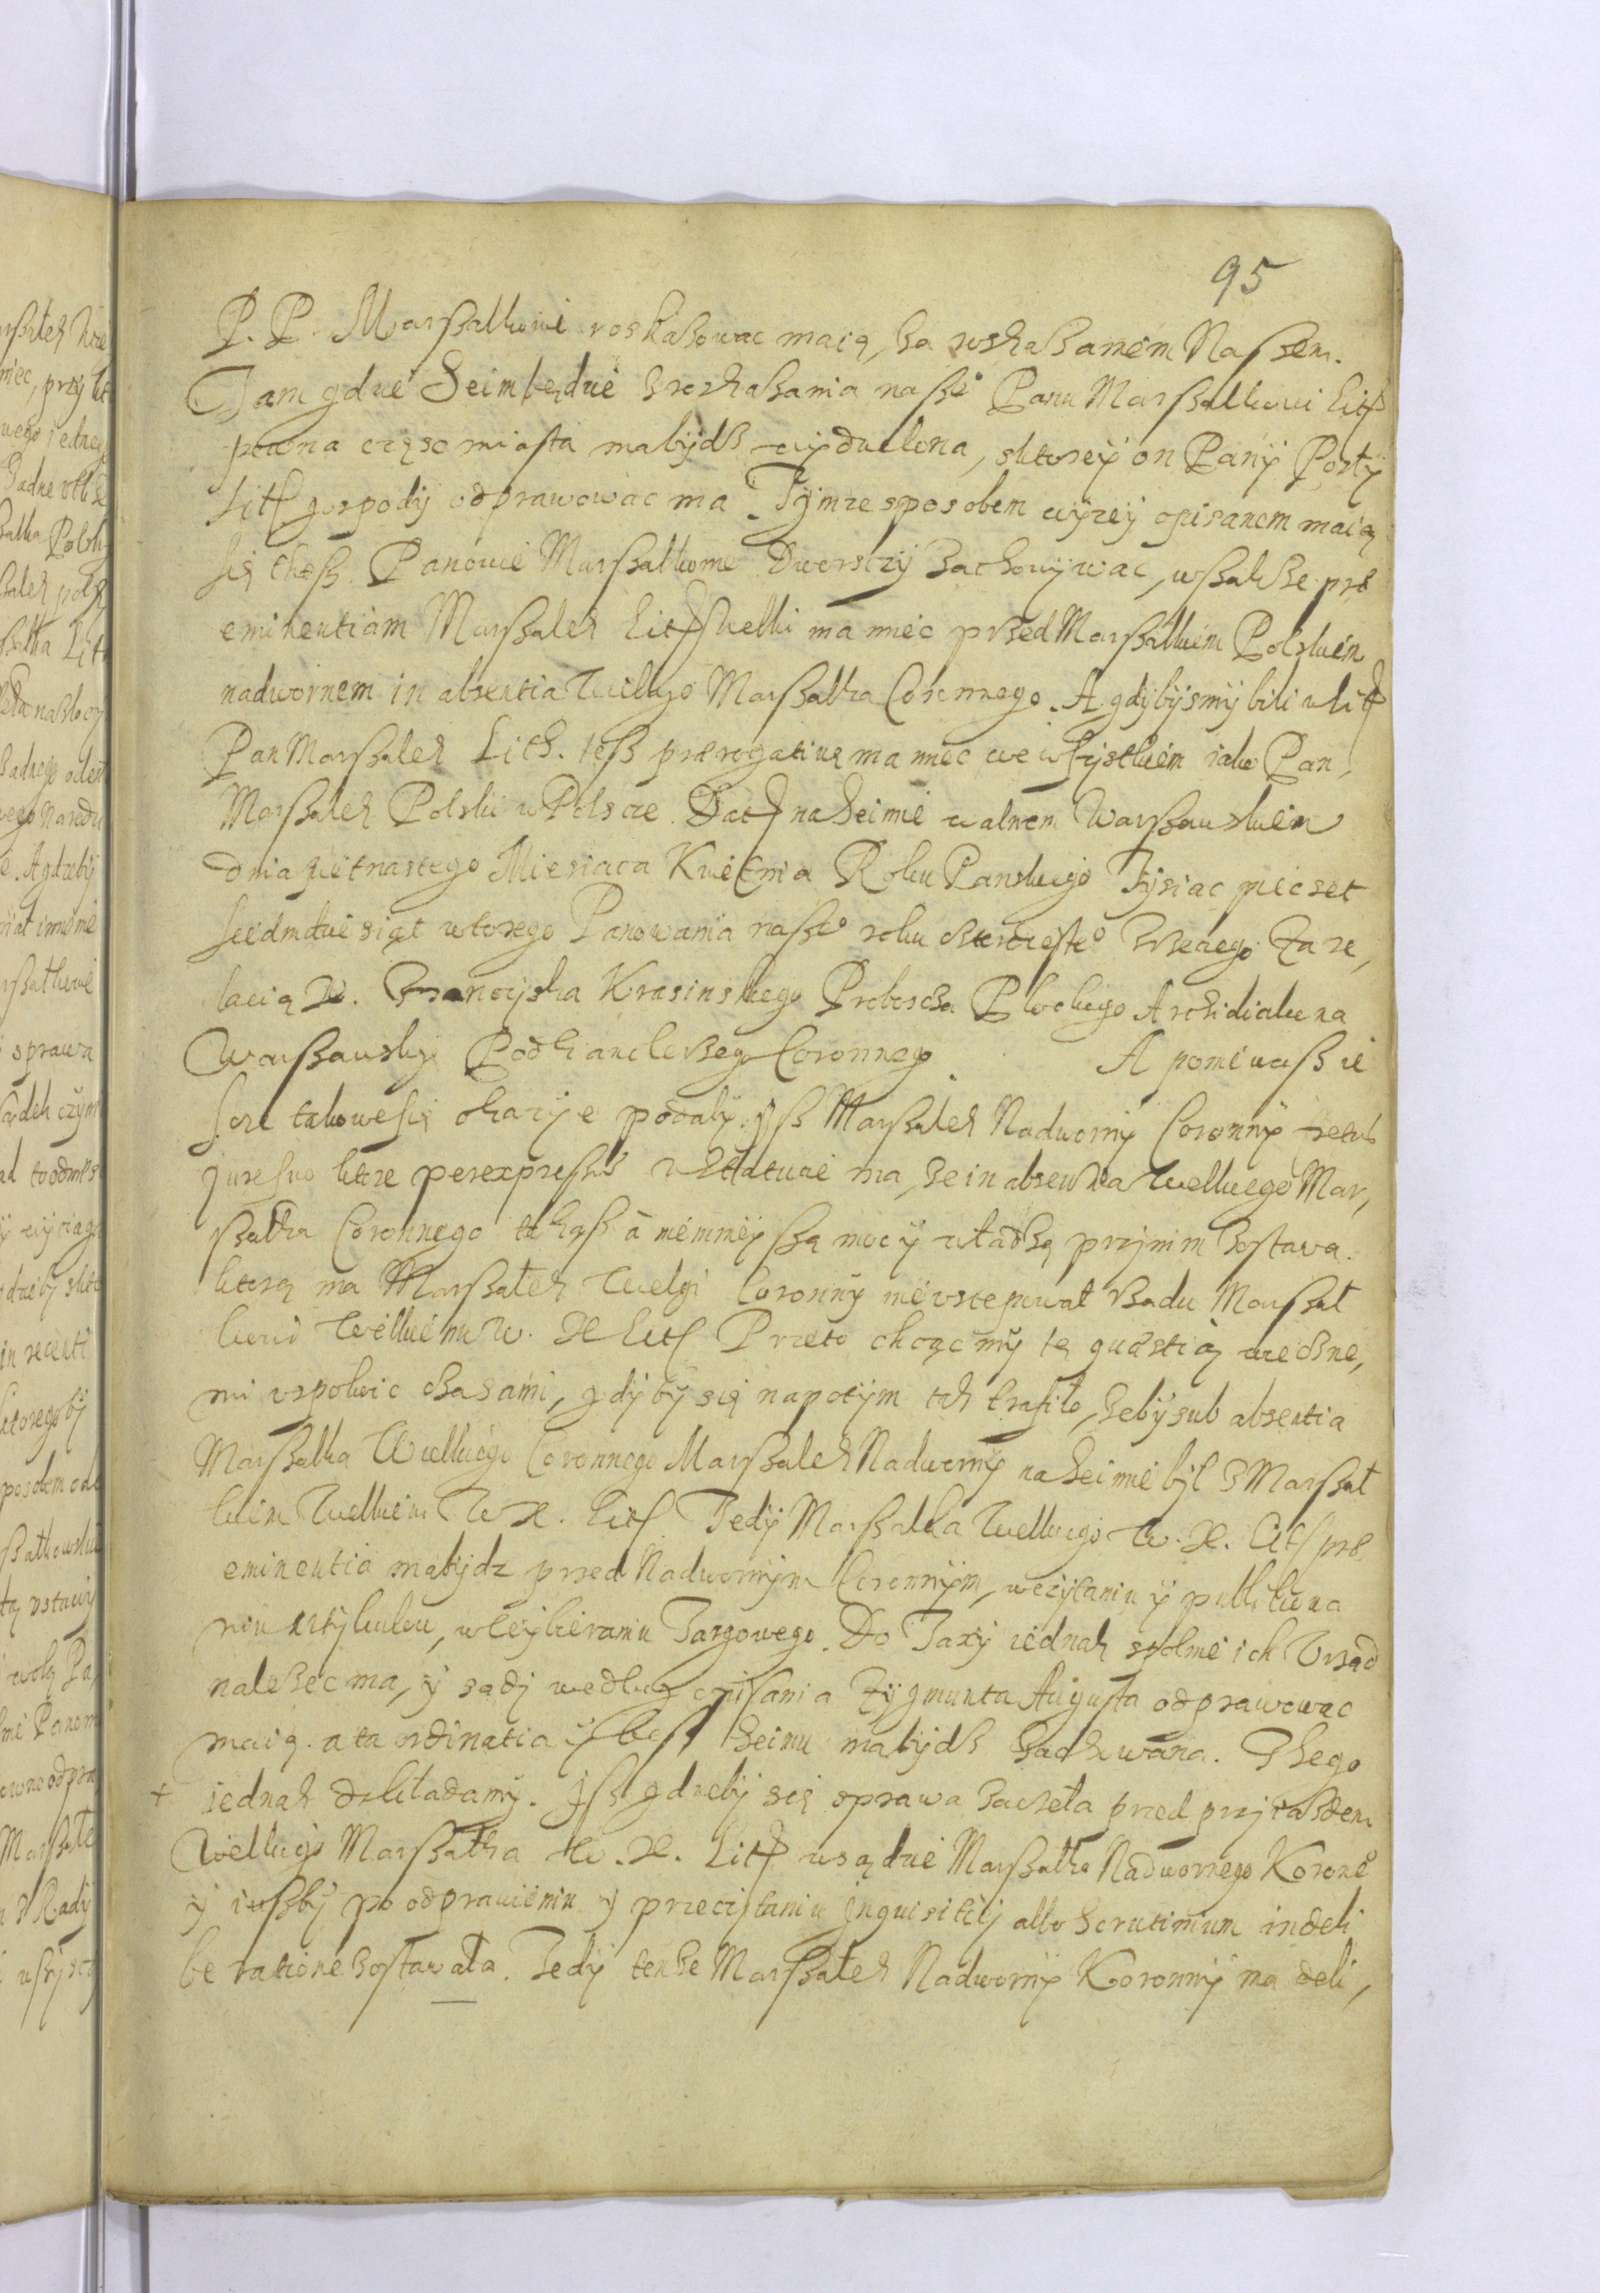 95
P. P. Marßałkowie roskaßowac maią, ßa roskaßaniem Naßem.
Tam gdzie Seim będzie z roskaßania naßeo Panu Marßałkowi Litt
pewna częsc miasta ma bydß wydzielona, z ktorey on Pany Posły
Litt gospody odprawowac ma. Tymze sposobem wyzey opisanem maią
się theß Panowie Marßałkowie Dworsczy ßachowywac, wßakße præ
eminentiam Marßałek Litt wielki ma miec przed Marßałkiem Polskiem
nadwornem in absentia wielkiego Marßałka Coronnego. A gdybysmy bili w Litt
Pan Marßałek Lith. teß prærogatiuę ma miec we wßystkiem iako Pan,
Marßałek Polski w Polscze. Datt na Seimie walnem Warßauskiem
dnia pietnastego Miesiaca Kwietnia Roku Panskiego Tysiac piecset
siedmdziesiąt wtorego Panowania naßeo roku czterdziesteo trzeciego. Za re,
lacią W. Franciska Krasinskiego Proboscza Plockiego Archidiakona
Warßauskiego Podkanclerzego Coronnego. A poniewaß ie
scze takowe się okazye podały. Iß Marßałek Nadworny Coronny
jure suo ktore per expressum w Statucie ma, ße in absentia wielkiego Mar,
ßałka Coronnego takąß a niemnieyßą moc y władßą przy nim ßostawa.
ktorą ma Marßałek wielgi Coronny nie vstepował Rządu Marßał
kowi wielkiemu W. X Litt Przeto chcąc my tę quæstią wiecßne,
mi vspokoic czasami, gdyby się napotym tak trafiło, ßeby sub absentia
Marßałka Wielkiego Coronnego Marßałek Nadworny na Seimie był z Marßał
kiem wielkiem W X. Litt. Tedy Marßałka wielkiego W. X. Litt præ
eminentia ma bydz przed Nadwornym Coronnym, w czytaniu y publikowa
niu artykułow, w wybieraniu Targowego. Do Taxy iednak społnie ich Vrząd
naleßec ma, y sądy według opisania Zygmunta Augusta odprawowac
maią. a ta ordinatia y beß Seimu ma bydß ßachowana. Tßego
+ iednak dokładamy. Iß gdzieby się sprawa ßaczęła przed przyiazdem
Wielkiego Marßałka W. X. Litt w sądzie Marßałka Nadwornego Koroneo
y iußby po odprawieniu y przeczytaniu Inquisitiey albo Scrutinium in deli
beratione ßostawała. Tedy tenße Marßałek Nadworny Koronny ma deli,